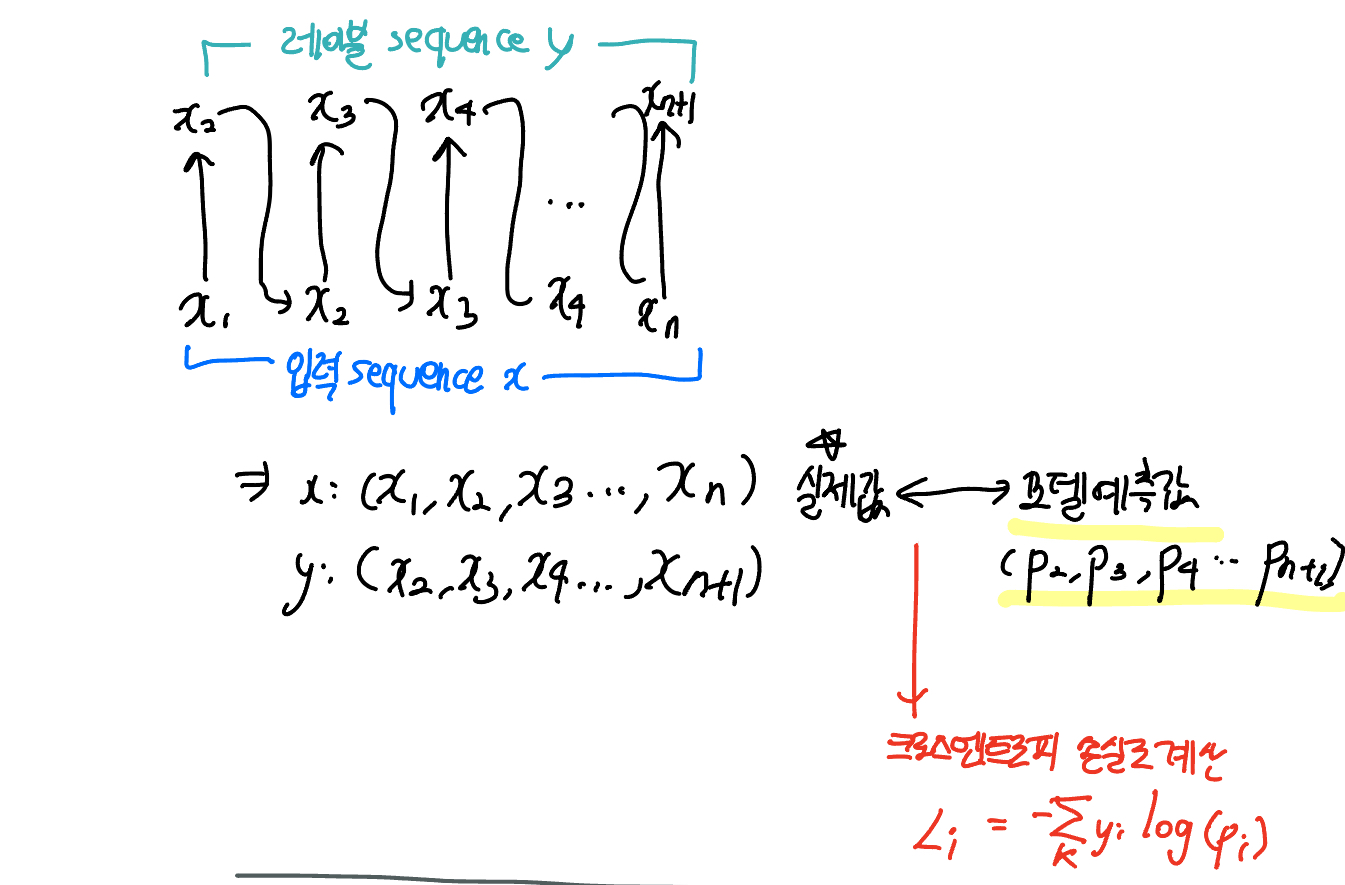 레이블 sequence y
x₂ x₃ x₄ xₙ₊₁
...
x₁ x₂ x₃ x₄ xₙ
입력 sequence x
⇒ x: (x₁, x₂, x₃ ..., xₙ) 실제값 ↔ 모델예측값
y: (x₂, x₃, x₄ ..., xₙ₊₁) (p₂, p₃, p₄ ... pₙ₊₁)
크로스엔트로피 손실로 계산
Lᵢ = -∑ₖ yᵢ log(pᵢ)